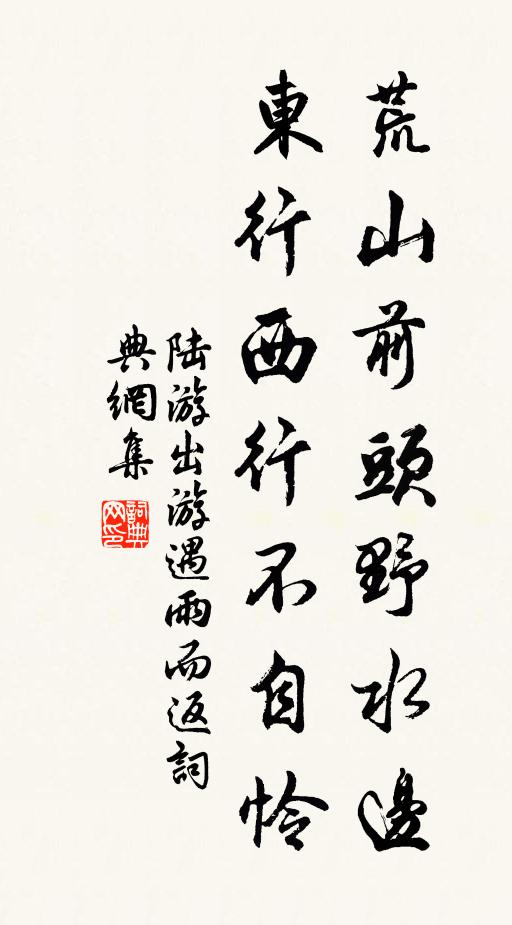 荒山前頭野水邊
東行西行不自怜
陆游出游遇雨而返詞
典網集
詞典网印